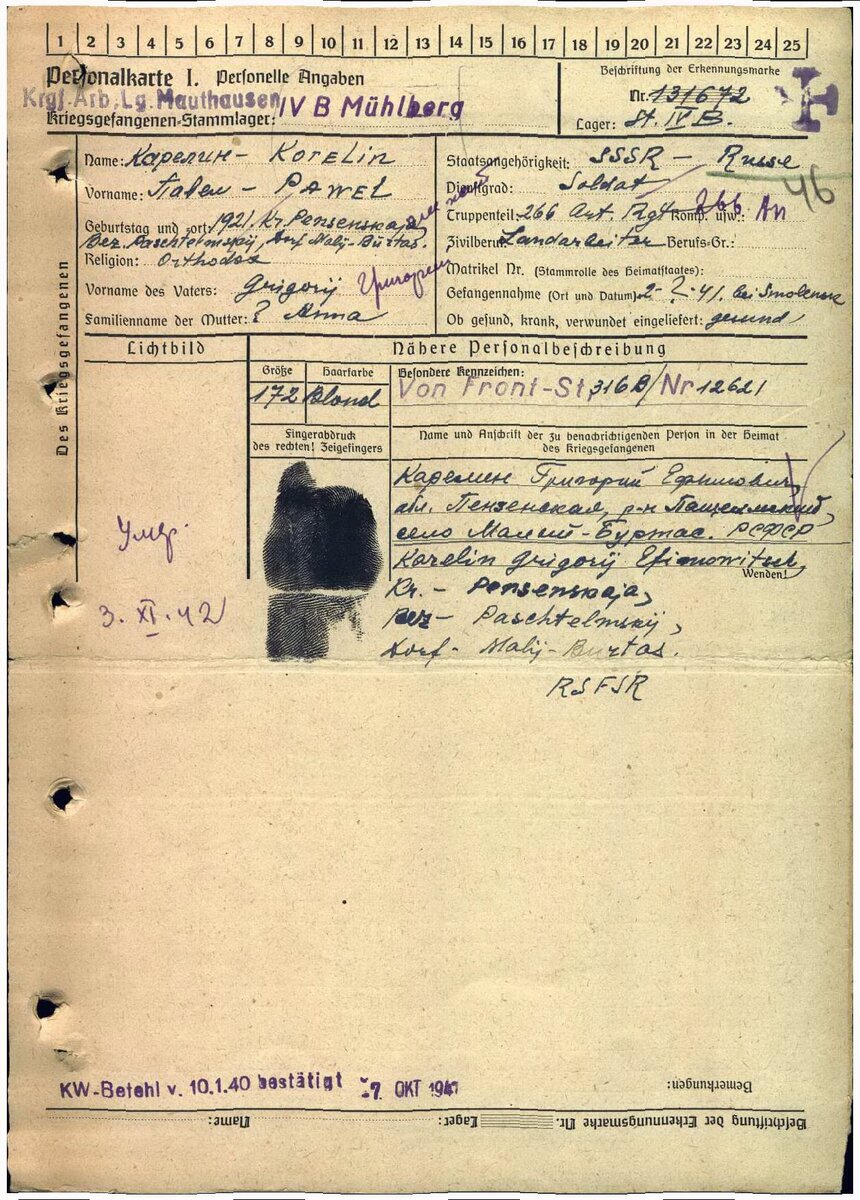 1 2 3 4 5 6 7 8 9 10 11 12 13 14 15 16 17 18 19 20 21 22 23 24 25
Personalkarte I. Personelle Angaben
Krgf. Arb. Lg. Mauthausen
Kriegsgefangenen-Stammlager: IV B Mühlberg
Beschriftung der Erkennungsmarke
Nr. 131672
Lager: St. IV B.
Des Kriegsgefangenen
Name: Карелин - Korelin
Vorname: Павел - PAWEL
Geburtstag und -ort: 1921, Kr. Pensenskaja,
Bez. Paschtelmskij, Dorf Malij-Burtas.
Religion: Orthodox
Vorname des Vaters: Grigorij Григорий
Familienname der Mutter: ? Anna
Staatsangehörigkeit: SSSR - Russe
46
Dienstgrad: Soldat
Truppenteil: 266 Art. Rgt Komp. usw.: 266 Ап
Zivilberuf: Landarbeiter Berufs-Gr.:
Matrikel Nr. (Stammrolle des Heimatstaates):
Gefangennahme (Ort und Datum): 2-?-41. bei Smolensk
Ob gesund, krank, verwundet eingeliefert: gesund
Lichtbild
Nähere Personalbeschreibung
Größe
172
Haarfarbe
Blond
Besondere Kennzeichen:
Von Front-St. 316B/Nr 12621
Fingerabdruck
des rechten! Zeigefingers
Name und Anschrift der zu benachrichtigenden Person in der Heimat
des Kriegsgefangenen
Карелин Григорий Ефимович
обл. Пензенская, р-н Пащелмский,
село Малий-Буртас. РСФСР
Karelin Grigorij Efimowitsch,
Wenden!
Kr. - Pensenskaja,
Bez - Paschtelmskij,
Dorf - Malij-Burtas.
RSFSR
Умр.
3. XI. 42
KW-Befehl v. 10.1.40 bestätigt 7. OKT 1941
Bemerkungen:
Beschriftung der Erkennungsmarke Nr. Lager: Name: